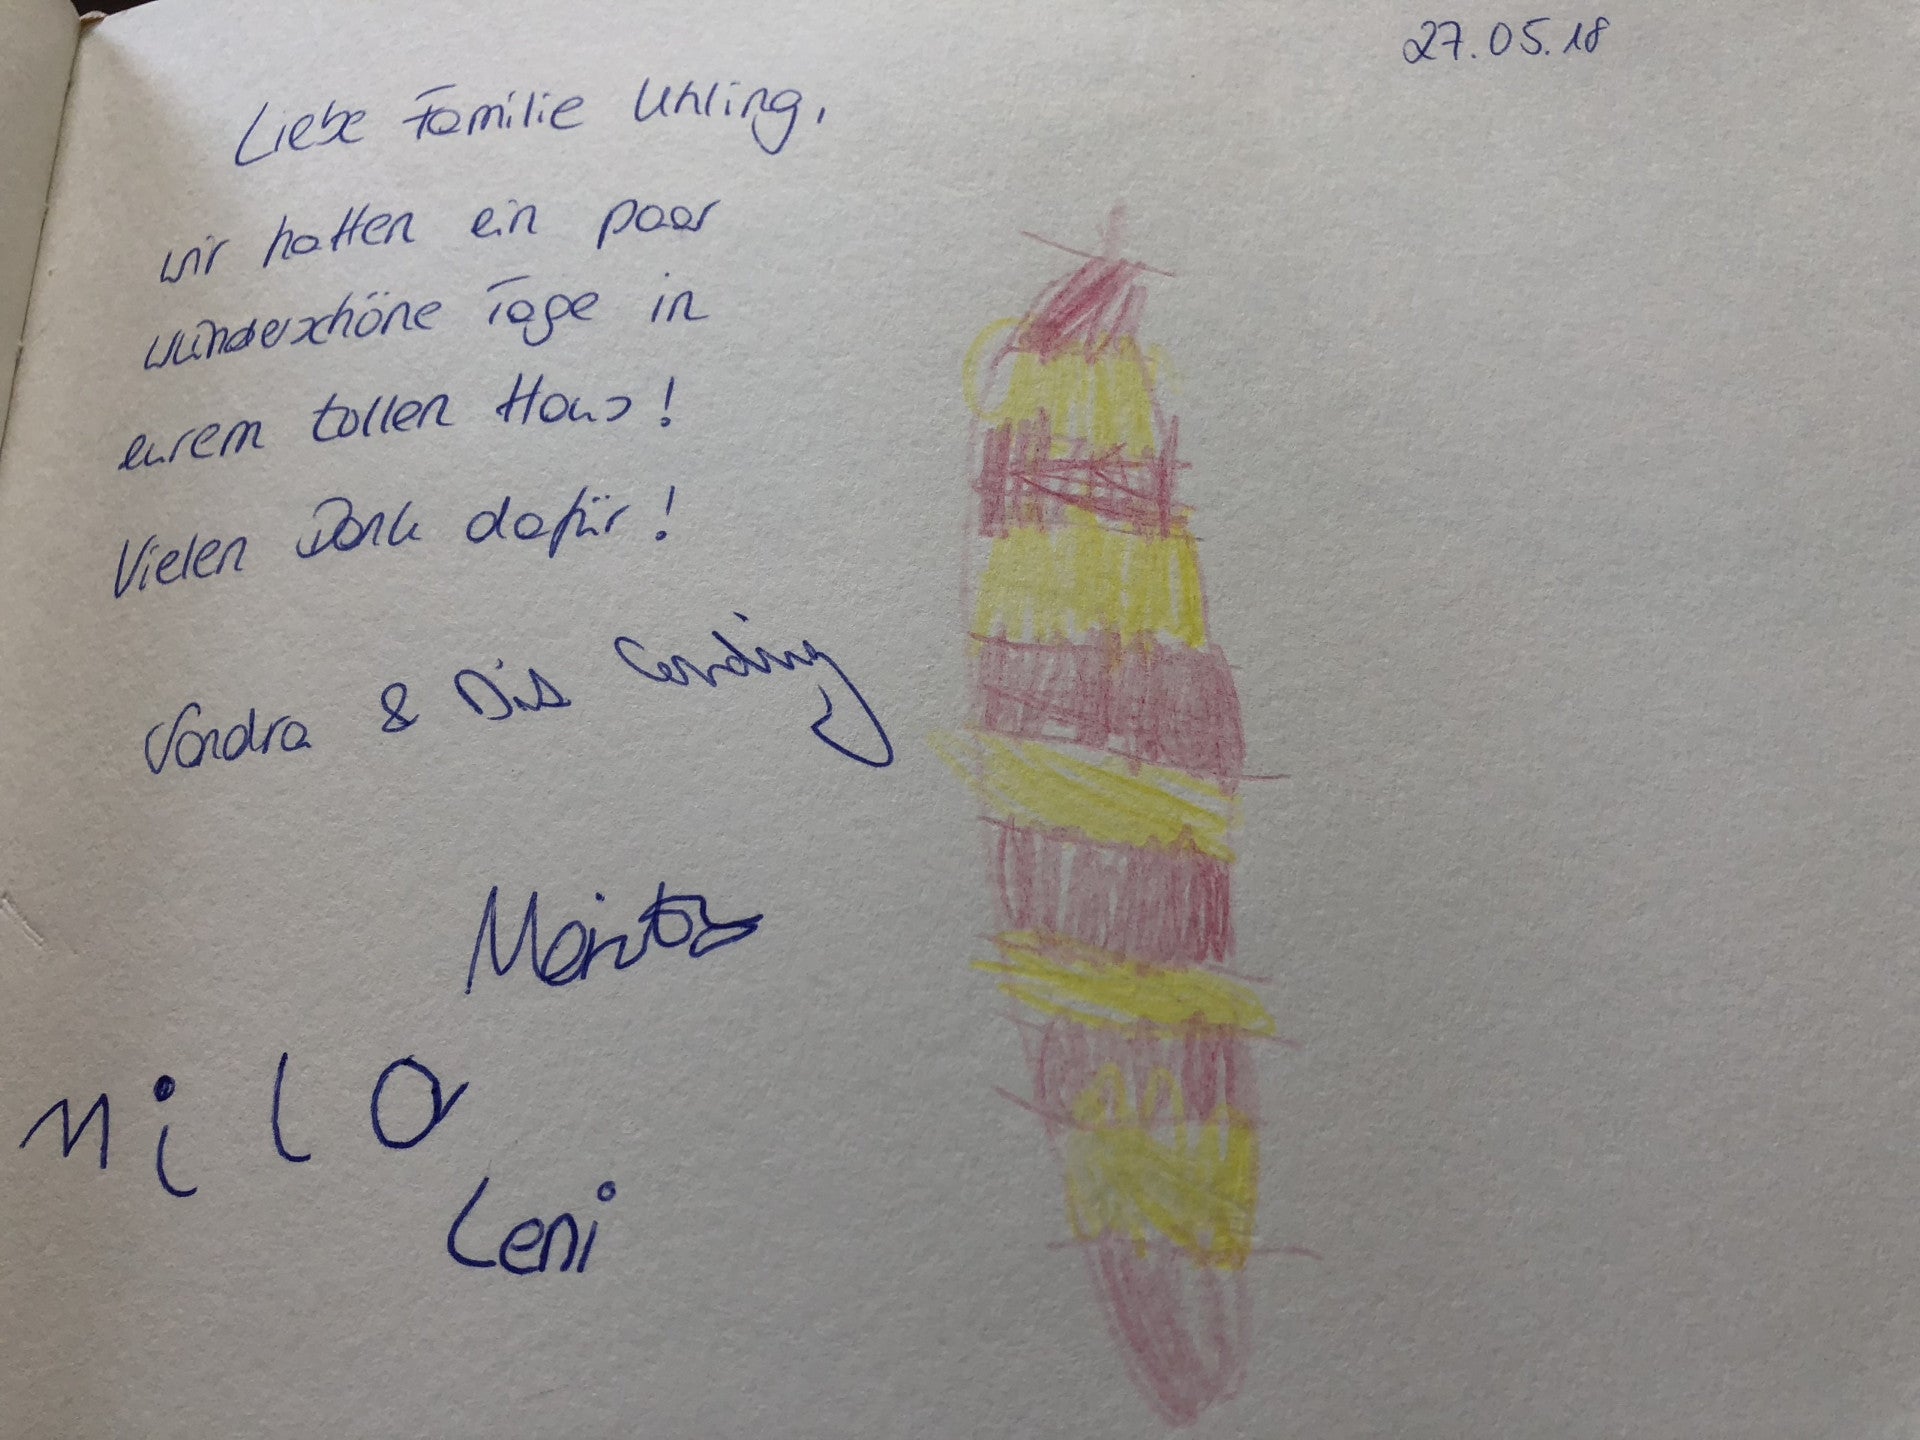 27.05.18
Liebe Familie Uhling,
wir hatten ein paar
wunderschöne Tage in
eurem tollen Haus!
Vielen Dank dafür!
Sandra &
Moritz
Milo
Leni